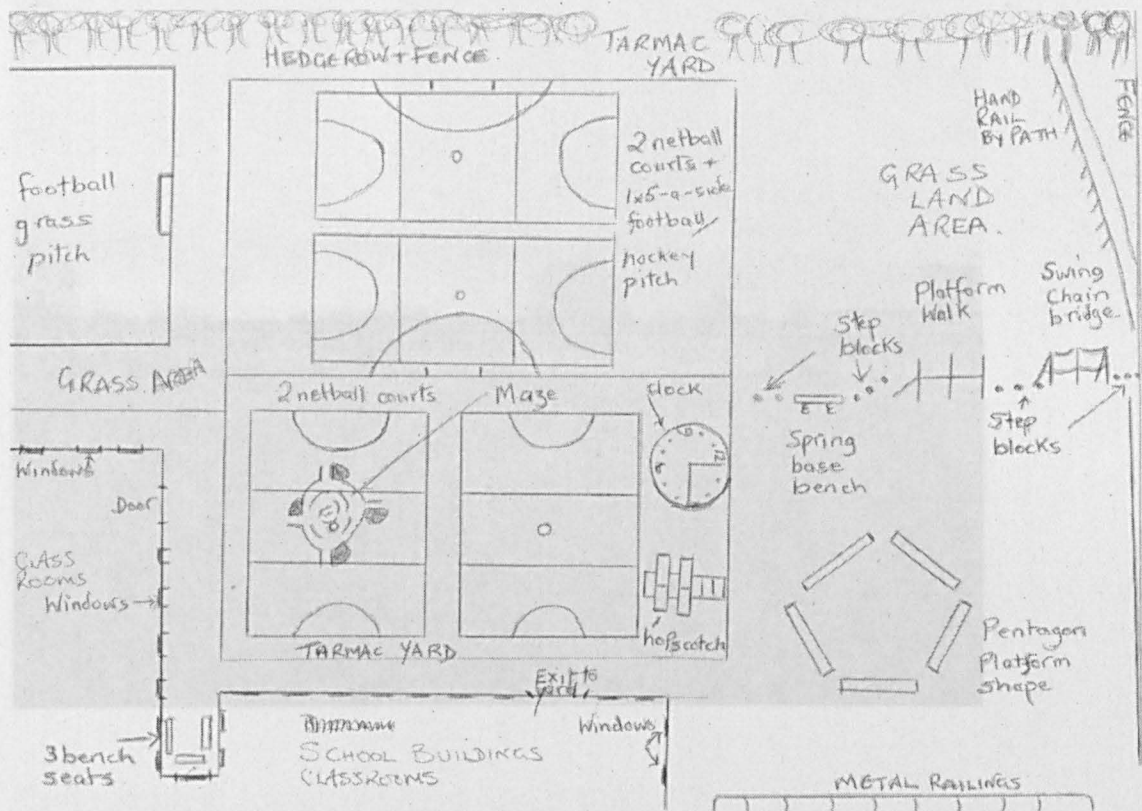 HEDGEROW + FENCE
TARMAC
YARD
FENCE
HAND
RAIL
BY PATH
football
grass
pitch
2 netball
courts +
1x5-a-side
football/
hockey
pitch
GRASS
LAND
AREA.
Platform
Walk
Swing
Chain
bridge
Step
blocks
GRASS AREA
2 netball courts
Maze
clock
12
Step
blocks
Spring
base
bench
Windows
Door
CLASS
ROOMS
Windows
hopscotch
TARMAC YARD
Pentagon
Platform
shape
Exit to
yard
Windows
3 bench
seats
SCHOOL BUILDINGS
CLASSROOMS
METAL RAILINGS